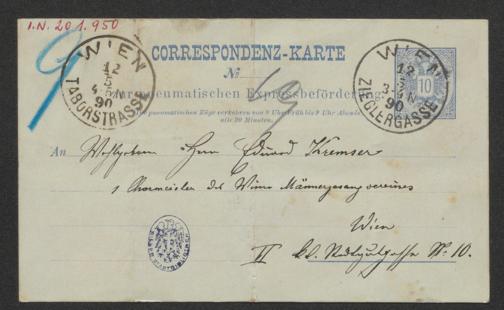 I.N. 201.950
WIEN
12
5
90
TABORSTRASSE
CORRESPONDENZ-KARTE
No
zur pneumatischen Expressbeförderung.
Die pneumatischen Züge verkehren von 8 Uhr Früh bis 9 Uhr Abends
alle 20 Minuten.
WIEN
12
5
3-4N
90
ZIEGLERGASSE
10
An Wohlgeboren Herrn Eduard Kremser
Chormeister des Wiener Männergesangvereines
Wien
II No. 10.